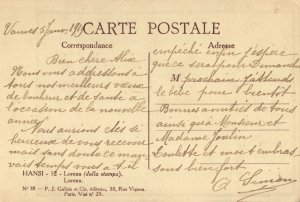 Vanves 3 Janv. 19
CARTE POSTALE
Correspondance
Adresse
Bien chère Alix
Nous vous addressons a
tous nos meilleurs vœux
de bonheur et de santé à
l'occasion de la nouvelle
année.
Nous aurions étés si
heureux de vous recevoir
mais sans doute ce mauvais
vais temps vous a t-il
empéché enfin j'espère
que ce sera pour Dimanche
M prochain j'attends
le bébé pour bientôt
Bonnes amitiés de tous
ainsi qu'à Monsieur et
Madame
Paulette et moi t'embrassons
bien fort
HANSI - 12 - Lorena (dalla stampa).
Lorena.
N° 28 — P. J. Gallais et Cie, éditeurs, 38, Rue Vignon.
Paris. Visé n° 29.